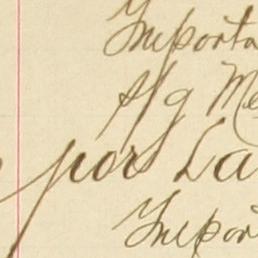 Importa
s/g Me
por La
Import